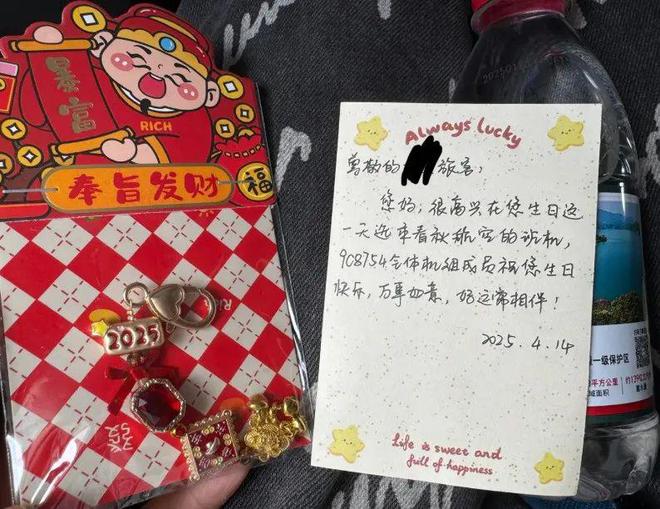 暴富
RICH
奉旨发财
福
2025
Always lucky
尊敬的 旅客：
您好，很高兴在您生日这
一天选乘春秋航空的航机，
9C8754全体机组成员祝您生日
快乐，万事如意，好运常相伴！
2025.4.14
Life is sweet and
full of happiness
一级保护区
平方公里
域面积